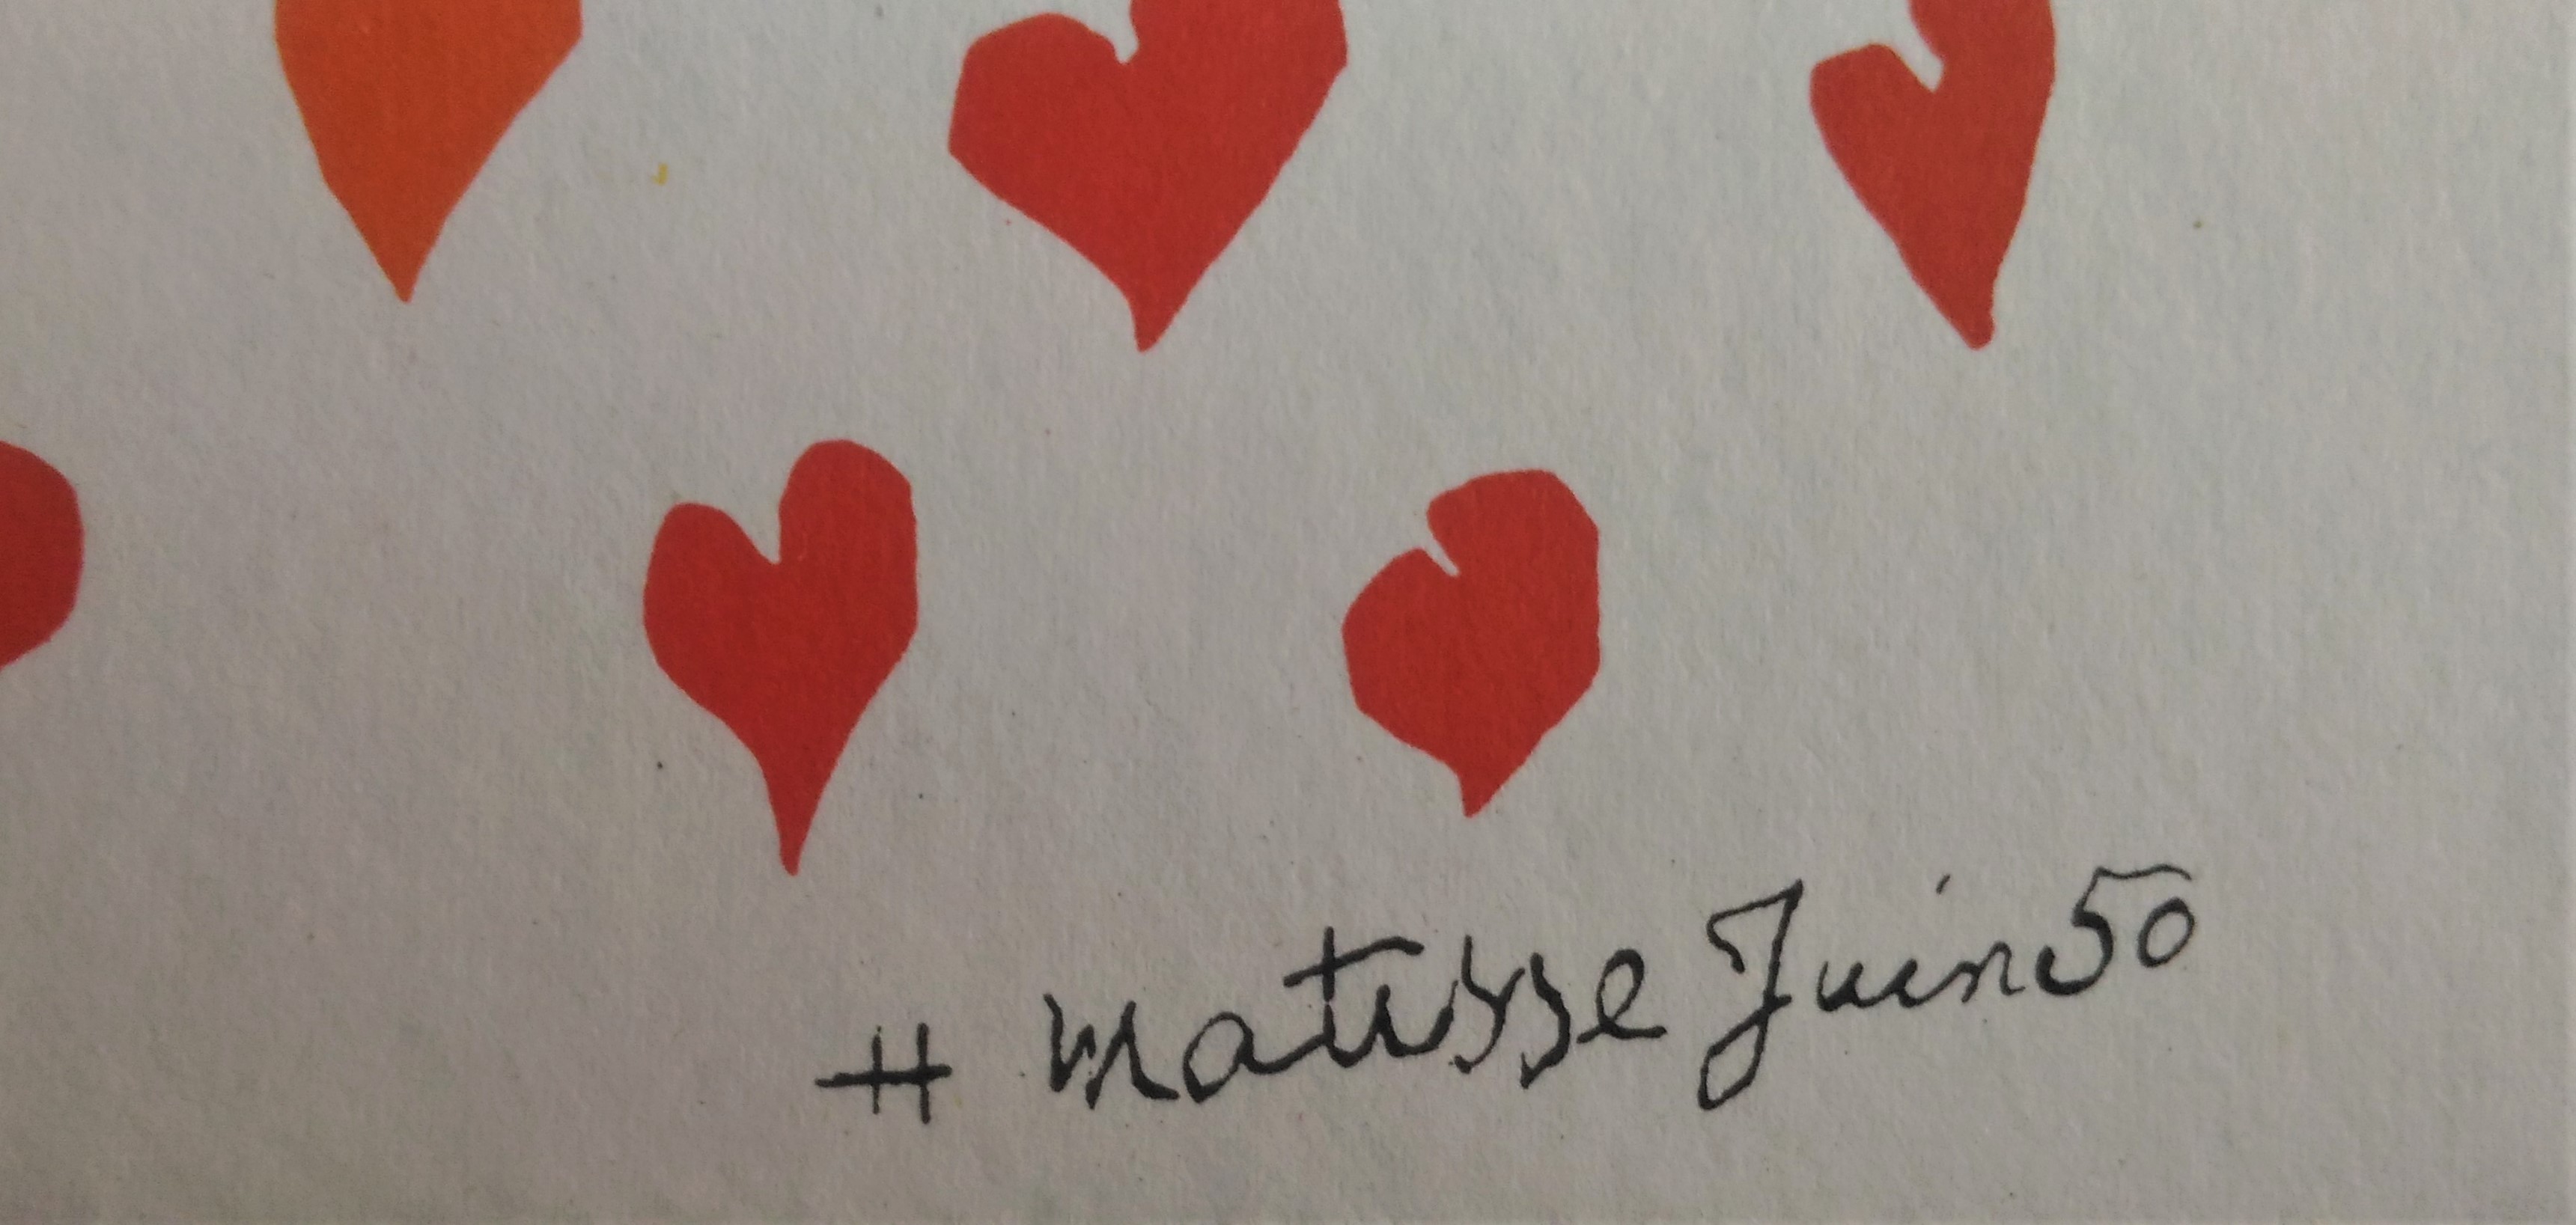 H Matisse Juin 50